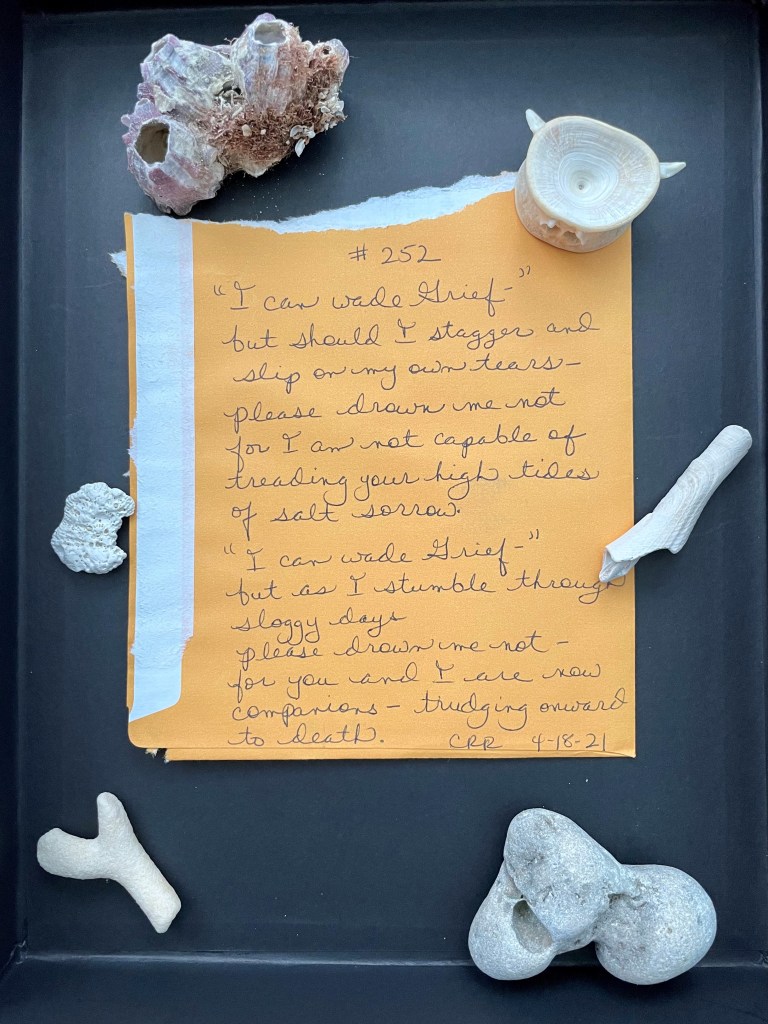 # 252
"I can wade Grief-"
but should I stagger and
slip on my own tears-
please drown me not
for I am not capable of
treading your high tides
of salt sorrow.
"I can wade Grief-"
but as I stumble through
sloggy days
please drown me not-
for you and I are now
companions- trudging onward
to death. CRR 4-18-21